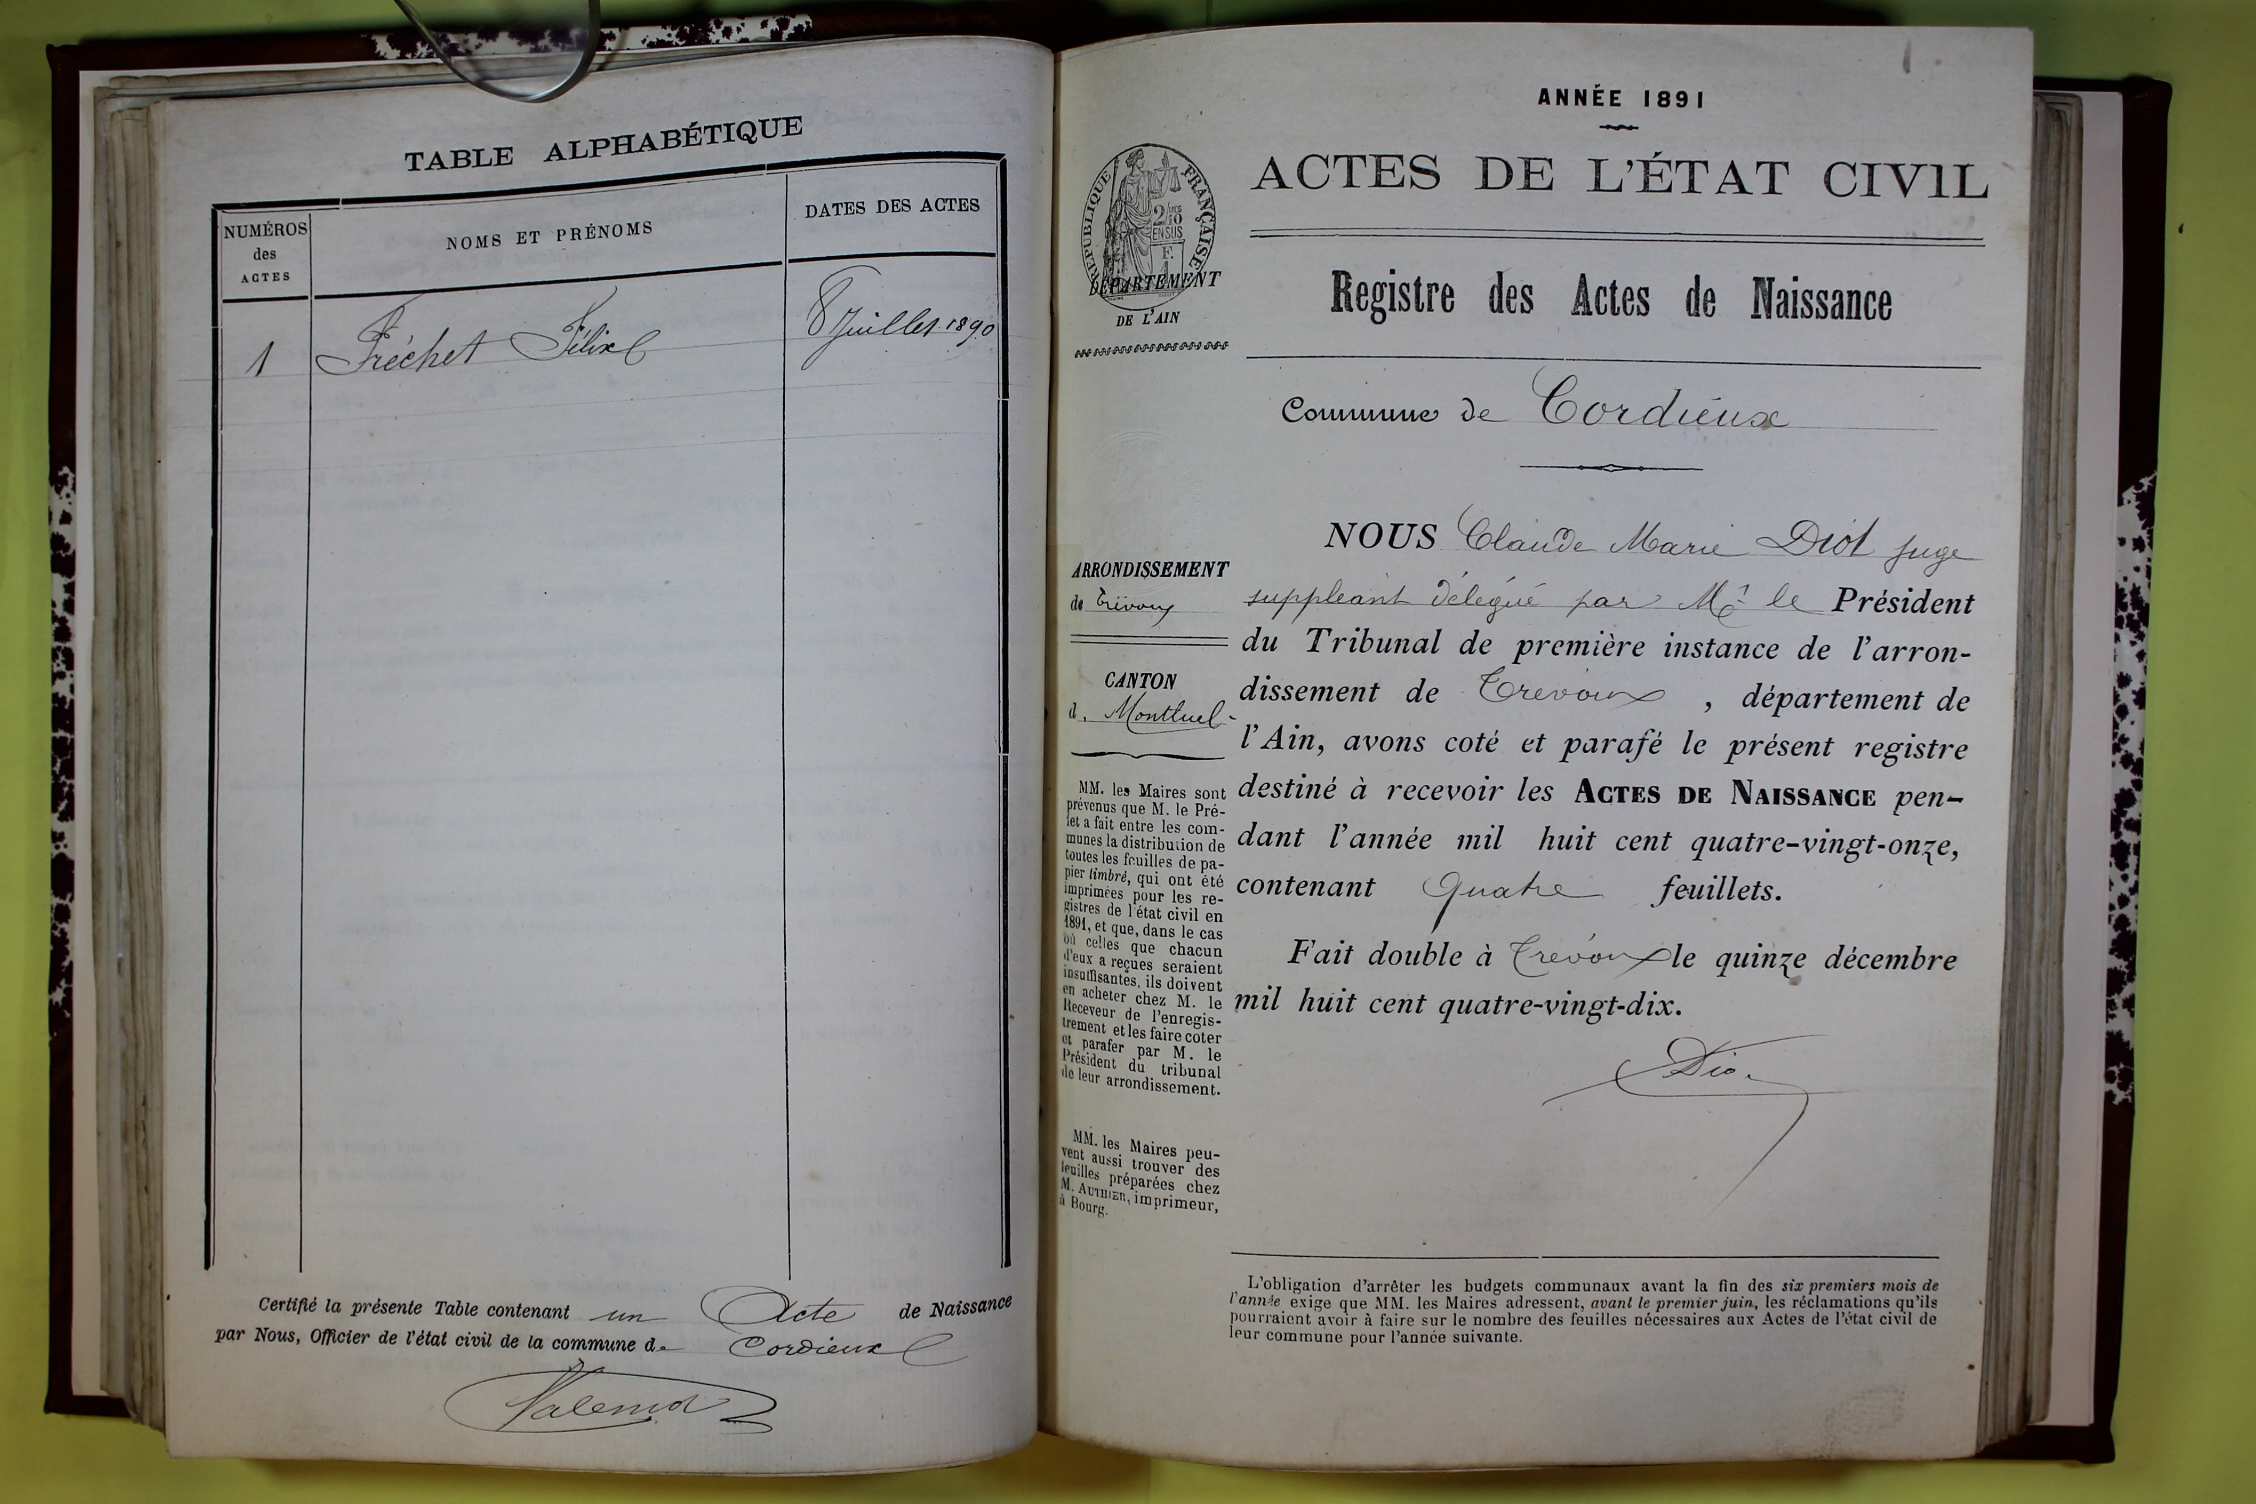 TABLE ALPHABÉTIQUE
NUMÉROS
des
ACTES
NOMS ET PRÉNOMS
DATES DES ACTES
1
Fréchet Félix
8 Juillet 1890
Certifié la présente Table contenant un Acte de Naissance
par Nous, Officier de l'état civil de la commune de Cordieux
ANNÉE 1891
ACTES DE L'ÉTAT CIVIL
RÉPUBLIQUE FRANÇAISE
2/10
EN SUS
DÉPARTEMENT
DE L'AIN
Registre des Actes de Naissance
Commune de Cordieux
ARRONDISSEMENT
de Trévoux
CANTON
d. Montluel
MM. les Maires sont
prévenus que M. le Pré-
fet a fait entre les com-
munes la distribution de
toutes les feuilles de pa-
pier timbré, qui ont été
imprimées pour les re-
gistres de l'état civil en
1891, et que, dans le cas
où celles que chacun
d'eux a reçues seraient
insuffisantes, ils doivent
en acheter chez M. le
Receveur de l'enregis-
trement et les faire coter
et parafer par M. le
Président du tribunal
de leur arrondissement.
MM. les Maires peu-
vent aussi trouver des
feuilles préparées chez
M. AUTHIER, imprimeur,
à Bourg.
NOUS Claude Marie Diot juge
suppléant délégué par Mr le Président
du Tribunal de première instance de l'arron-
dissement de Trevoux, département de
l'Ain, avons coté et parafé le présent registre
destiné à recevoir les ACTES DE NAISSANCE pen-
dant l'année mil huit cent quatre-vingt-onze,
contenant quatre feuillets.
Fait double à Trévoux le quinze décembre
mil huit cent quatre-vingt-dix.
L'obligation d'arrêter les budgets communaux avant la fin des six premiers mois de
l'année exige que MM. les Maires adressent, avant le premier juin, les réclamations qu'ils
pourraient avoir à faire sur le nombre des feuilles nécessaires aux Actes de l'état civil de
leur commune pour l'année suivante.